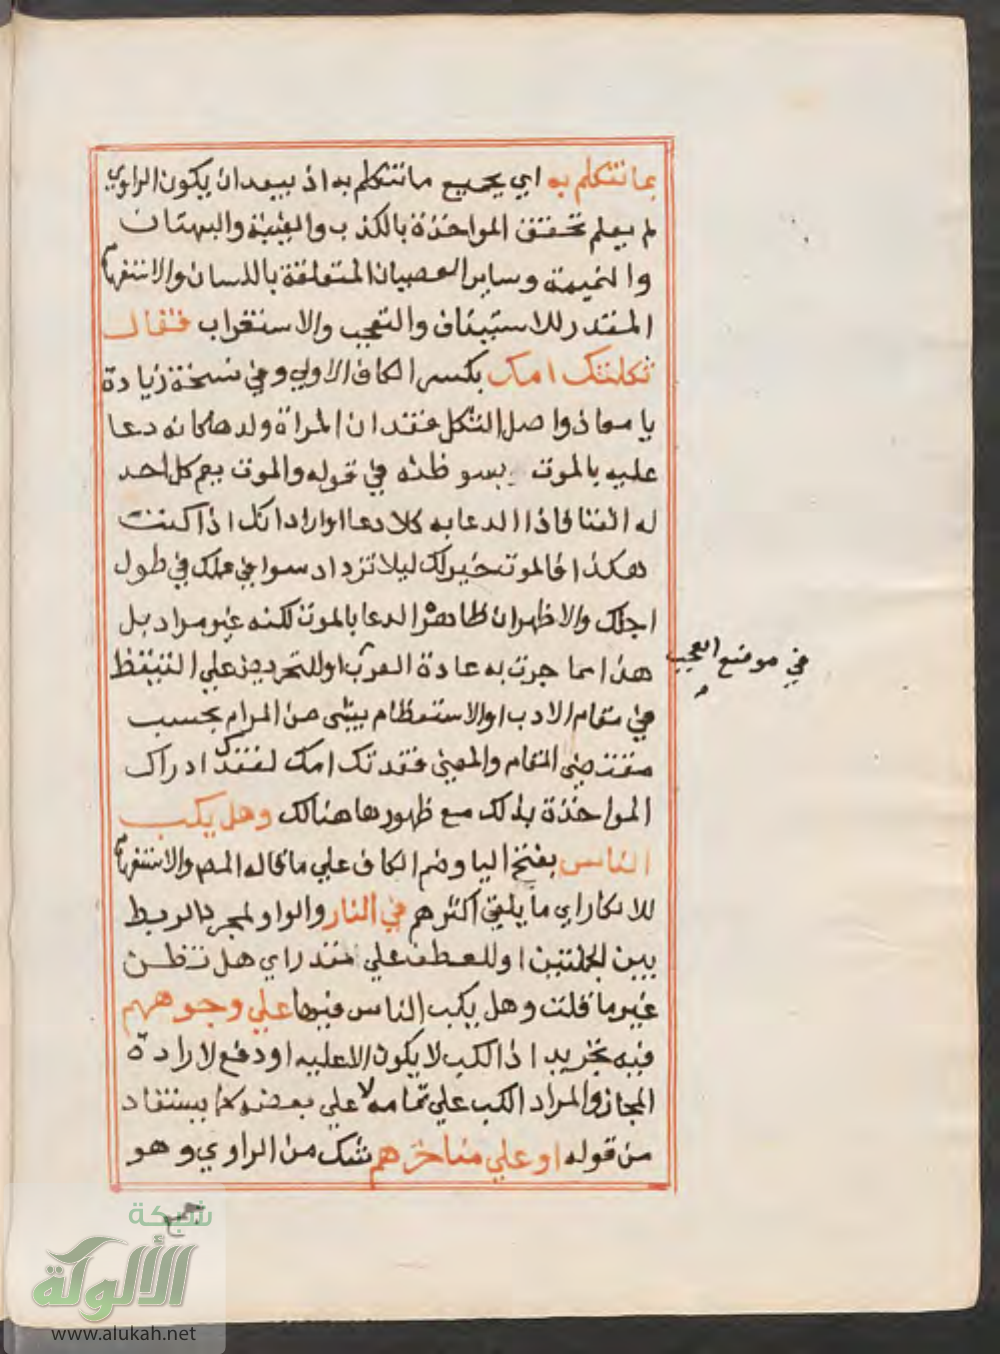 بما نتكلم به اي بجميع ما نتكلم به اذ يبعد ان يكون الراوي
لم يعلم تحقق المواخذة بالكذب والغيبة والبهتان
والنميمة وساير العصيان المتعلقة باللسان والاستفهام
المقدر للاستيناف والتعجب والاستغراب فقال
ثكلتك امك بكسر الكاف الاولي وفي نسخة زيادة
يا معاذ واصل الثكل فقدان المراة ولدها كانه دعا
عليه بالموت بسو ظنه في قوله والموت يعم كل احد
له الفنا فاذا الدعا به كلا دعا اواراد انك اذا كنت
هكذا فالموت خير لك ليلا تزداد سوا في عملك في طول
اجلك والاظهر ان ظاهره الدعا بالموت لكنه غير مراد بل
هذا مما جرت به عادة العرب او للتحريض علي التيقظ
في موضع العجب
في مقام الادب او الاستعظام بيتي من المرام بحسب
مقتضي المقام والمعني فقدتك امك لفقدك ادراك
المواخذة بذلك مع ظهورها هنالك وهل يكب
الناس بفتح اليا وضم الكاف علي ما قاله المص والاستفهام
للانكار اي ما يلقي اكثرهم في النار والواو لمجرد الربط
بين الجملتين او للعطف علي مقدر اي هل تظن
غير ما قلت وهل يكب الناس فيها علي وجوههم
فيه تجريد اذ الكب لا يكون الا عليه او دفع لارادة
المجاز والمراد الكب علي تمامه لا علي بعضه كما يستفاد
من قوله او علي مناخرهم شك من الراوي وهو
شبكة
الألوكة
www.alukah.net